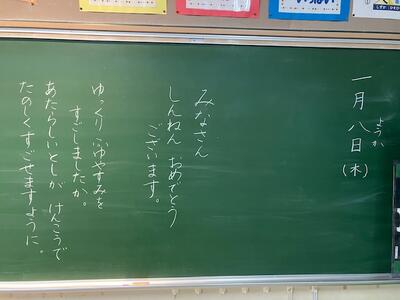 一月八日(木)
ようか
みなさん
しんねん おめでとう
ございます。
ゆっくり ふゆやすみを
すごしましたか。
あたらしいとしが けんこうで
たのしくすごせますように。